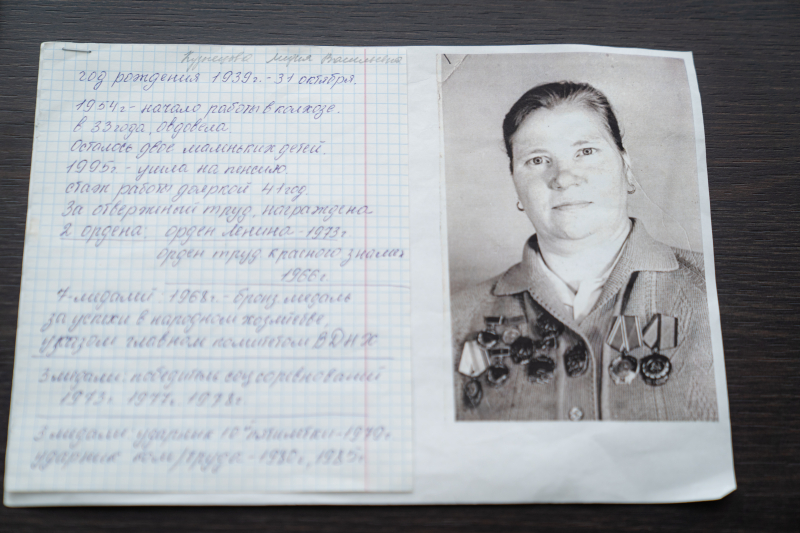 Мария Васильевна
год рождения 1939г. - 31 октября.
1954г - начало работы в колхозе.
в 33 года, овдовела
Осталось двое маленьких детей
1995г - ушла на пенсию.
стаж работы дояркой 41 год.
За отверженый труд, награждена
2 ордена: орден Ленина - 1973г
орден труд. красного знамен
1966г
7 - мидалий 1968г. - бронз. мидаль
за успехи в народном хозяйстве
указом главном комитетом ВДНХ
3 мидали: победитель соц соревнований
1973г. 1977г. 1978г.
3 мидали ударник 10ой пятилетки - 1979г
ударник ком/труда - 1980г, 1985г